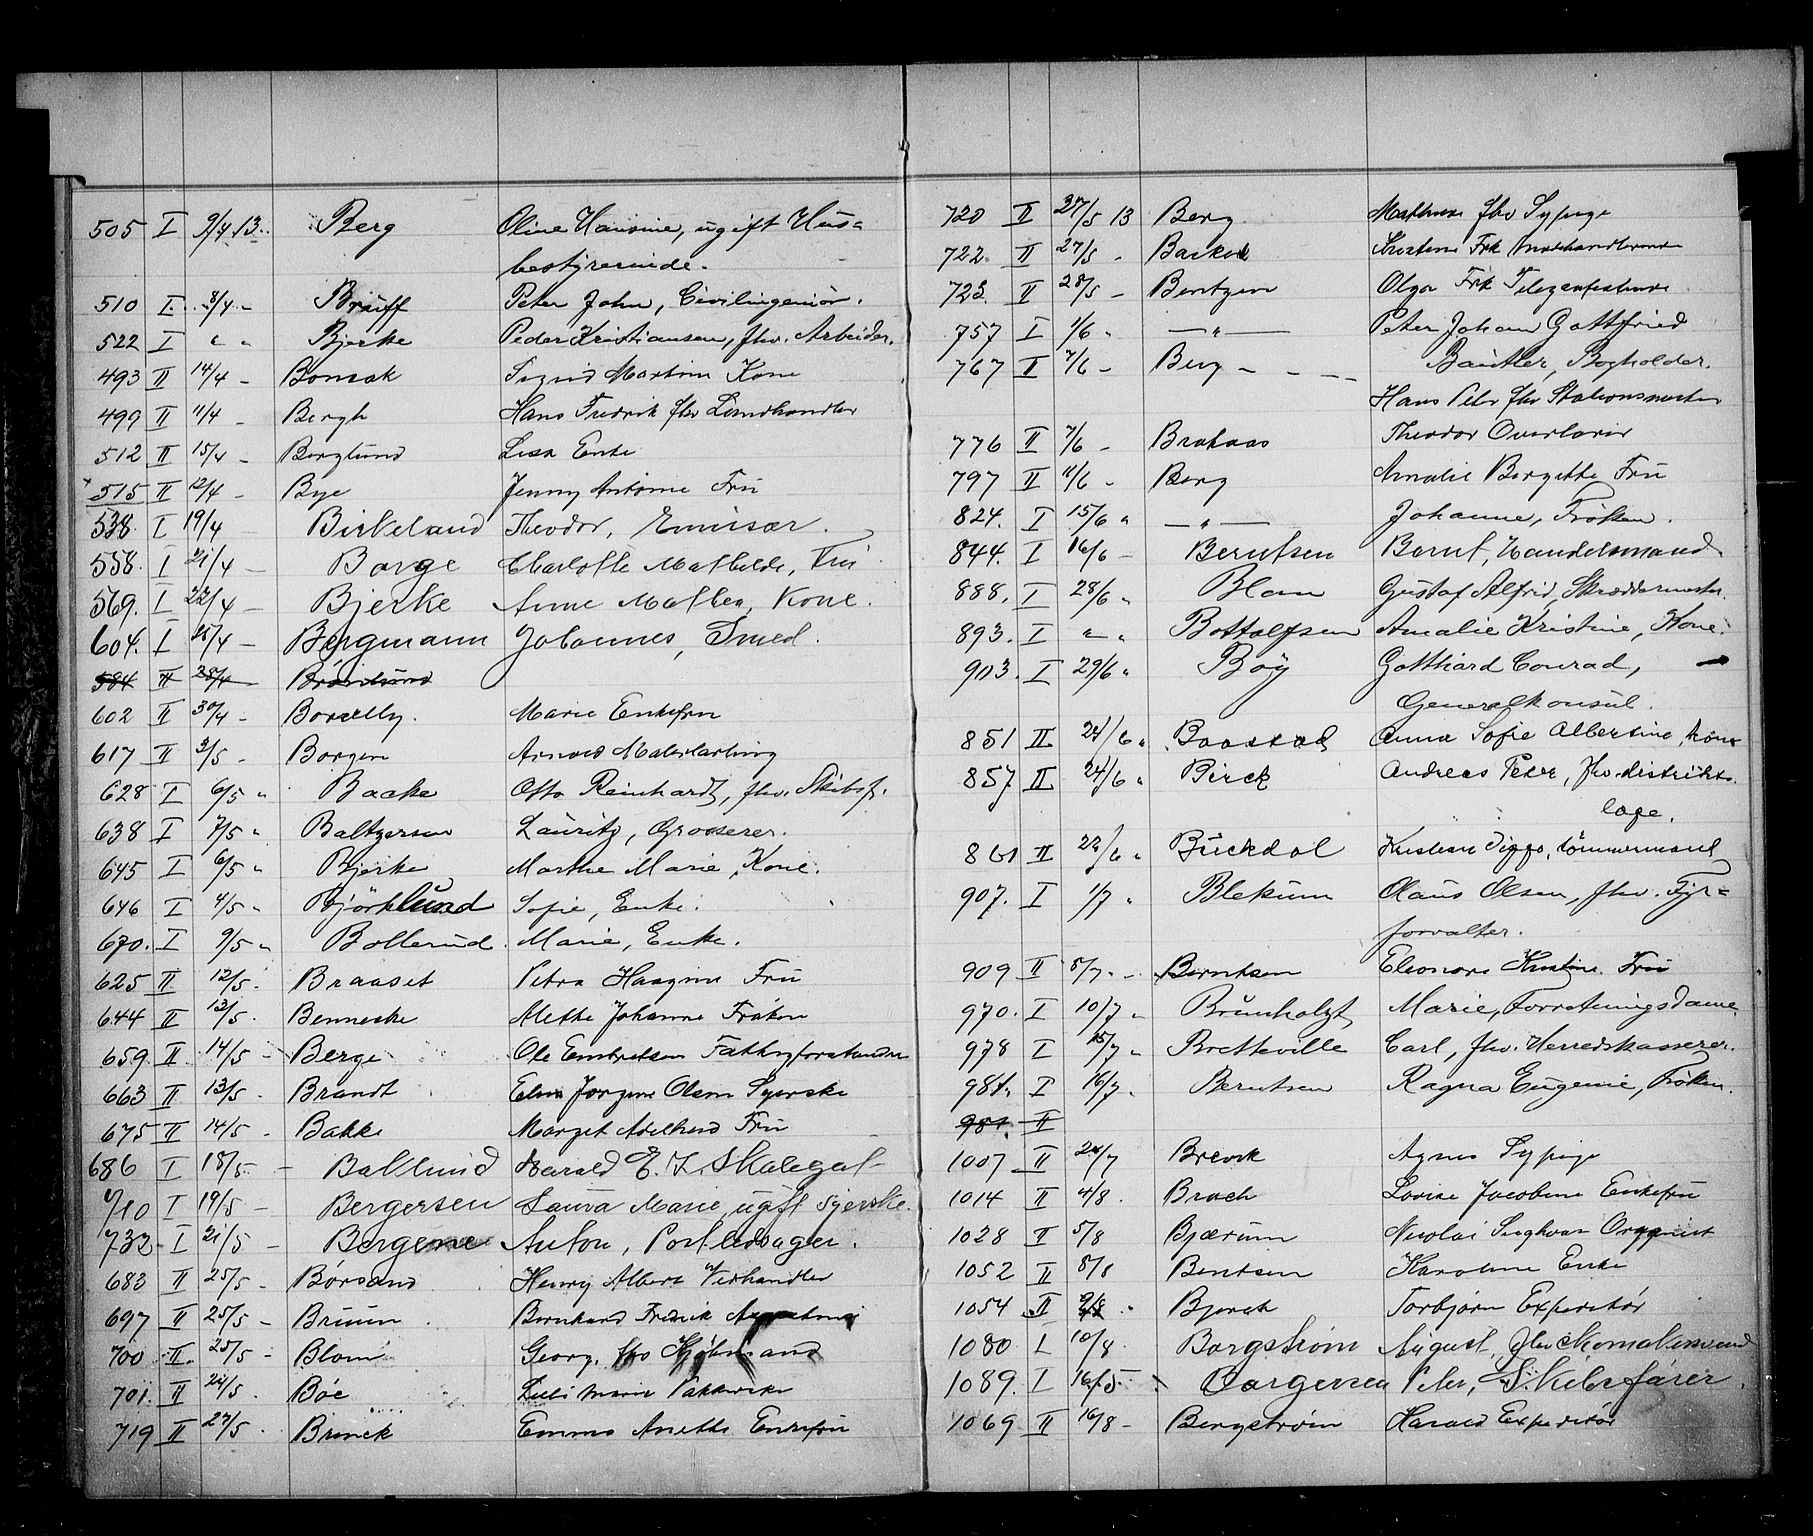 505 I 9/4 13. Berg Oline Hansine, ugift Hus=
bestyrerinde.
510 I 8/4 - Brüff Peter John, Civilingeniør.
522 I " " Bjerke Peder Kristiansen, fhv. Arbeider.
493 II 14/4 - Bonsak Sigrid Martine Kone
499 II 11/4 - Bergh Hans Fredrik fhv Landhandler
512 II 15/4 - Berglund Lisa Enke
515 II 12/4 - Bye Jenny Antonie Frü
538. I 19/4 Birkeland Theodor, Emissær.
558. I 21/4 - Borge Charlotte Mathilde, Frü
569. I 22/4 - Bjerke Anne Mathea, Kone.
604. I 25/4 - Bergmann Johannes, Smed.
584 II 28/4 Brönlund
602 II 30/4 - Borselly. Marie Enkefru
617 II 3/5 - Borgen Arnold Malerlærling
628 I 6/5 " Baake Otto Reinhardt, fhv. Skibsf.
638 I 7/5 " Baltzersen Lauritz, Grosserer.
645 I 6/5 " Bjerke Marthe Marie, Kone.
646 I 4/5 " Björklund Sofie, Enke.
670. I 9/5 " Bollerud. Marie, Enke.
625 II 12/5 . Braaset Petra Haagine Frü
644 II 13/5 . Benneche Mette Johanne Frøken
659. II 14/5 - Berge Ole Embretsen Fattigforstander
663 II 13/5 . Brandt Elen Jørgine Olsen Syerske
675 II 14/5 - Bakke Marget Adelheid Frü
686 I 18/5 - Baklund Harald E. I. Skalegat
710 I 19/5 - Bergersen Laura Marie, ugift Syerske.
732 I 21/5 - Bergene Anton, Portleidsager.
683 II 25/5 - Børsand Henry Albert Vedhandler
697 II 25/5 - Brüün Bernhard Fredrik
700 II 25/5 - Blom Georg, fhv Kjøbmand
701. II 24/5 . Böe Marie
719 II 27/5 . Brinck Emma Anette Enkefrü
720 II 27/5 13 Berg Mathea fhv Sypige
722. II 27/5 - Barkod Kristine Frk
723. II 28/5 - Bentzen Olga Frk Telegrafistinde
757 I 1/6 " —"— Peter Johan Gottfried
Bautler, Bogholder.
767 II 7/6 - Berg - - - Hans Peter fhv Stationsmester
776 II 7/6 - Brataas Theodor Overlærer
797 II 11/6 - Berg Amalie Bergitte Frü
824. I 15/6 " —"— Johanne, Frøken.
844. I 16/6 - Berntsen Bernt, Handelsmand
888. I 28/6 " Blom Gustaf Alfrid, Skræddermester.
893. I " " Bottolfsen Amalie Kristine, Kone.
903. I 29/6 " Boÿ Gotthard Conrad,
Generalkonsul.
851 II 24/6 " Baastad Anna Sofie Albertine, kone
857 II 24/6 " Birck Andreas Peter, fhv. distrikts-
læge.
861 II 22/6 " Bückdal Kristian tömmermand
907. I 1/7 " Blekum Claus Olsen, fhv. Fyr=
forvalter.
909 II 5/7. - Berntsen Eleonore Kristine Frü
970. I 10/7 " Brünholzt Marie, Forretningsdame
978 I 15/7 " Bretteville Carl, fhv. Herredskasserer.
981. I 16/7 . Berntsen Ragna Eugenie, Frøken.
981. II
1007 II 24/7 Brevik Agnes Sypige
1014 II 4/8 . Broch Lovise Jacobine Enkefrü
1028 II 5/8 Bjærum Nicolai Inghvar
1052 II 8/8 Bentsen Karoline Enke
1054 II 9/8 " Bjerck Torbjørn Expeditør
1080 I 10/8 Borgstrøm August, fhv
1089. I 16/5 Borgersen Peter, Skibsfører.
1069 II 16/8 - Bergstrøm Harald Expeditør